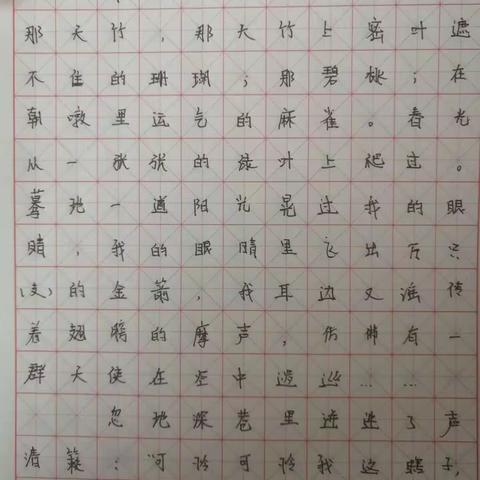 那天竹，那天竹上密叶遮
不住的珊瑚；那碧桃；在
朝暾里运气的麻雀。春光
从一张张的绿叶上爬过。
蓦地一道阳光晃过我的眼
睛，我的眼睛里飞出万只
（支）的金箭，我耳边又谣传
着翅膀的摩声，仿佛有一
群天使在空中逡巡……
忽地深巷里迸进了声
清籁：“可怜可怜我这瞎子，